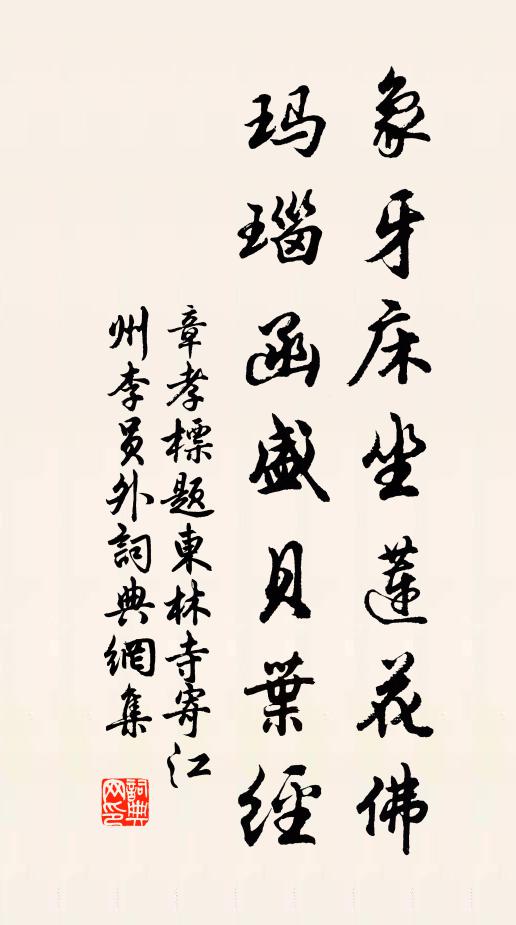 象牙床坐蓮花佛
玛瑙函盛貝葉經
章孝標题東林寺寄江
州李员外詞典網集
詞典
网印